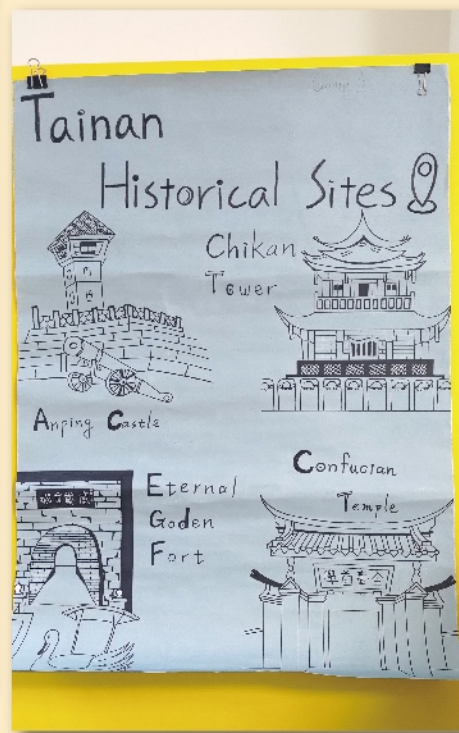 Tainan
Historical Sites
Chikan
Tower
Anping Castle
Eternal
Goden
Fort
Confucian
Temple
全臺首學